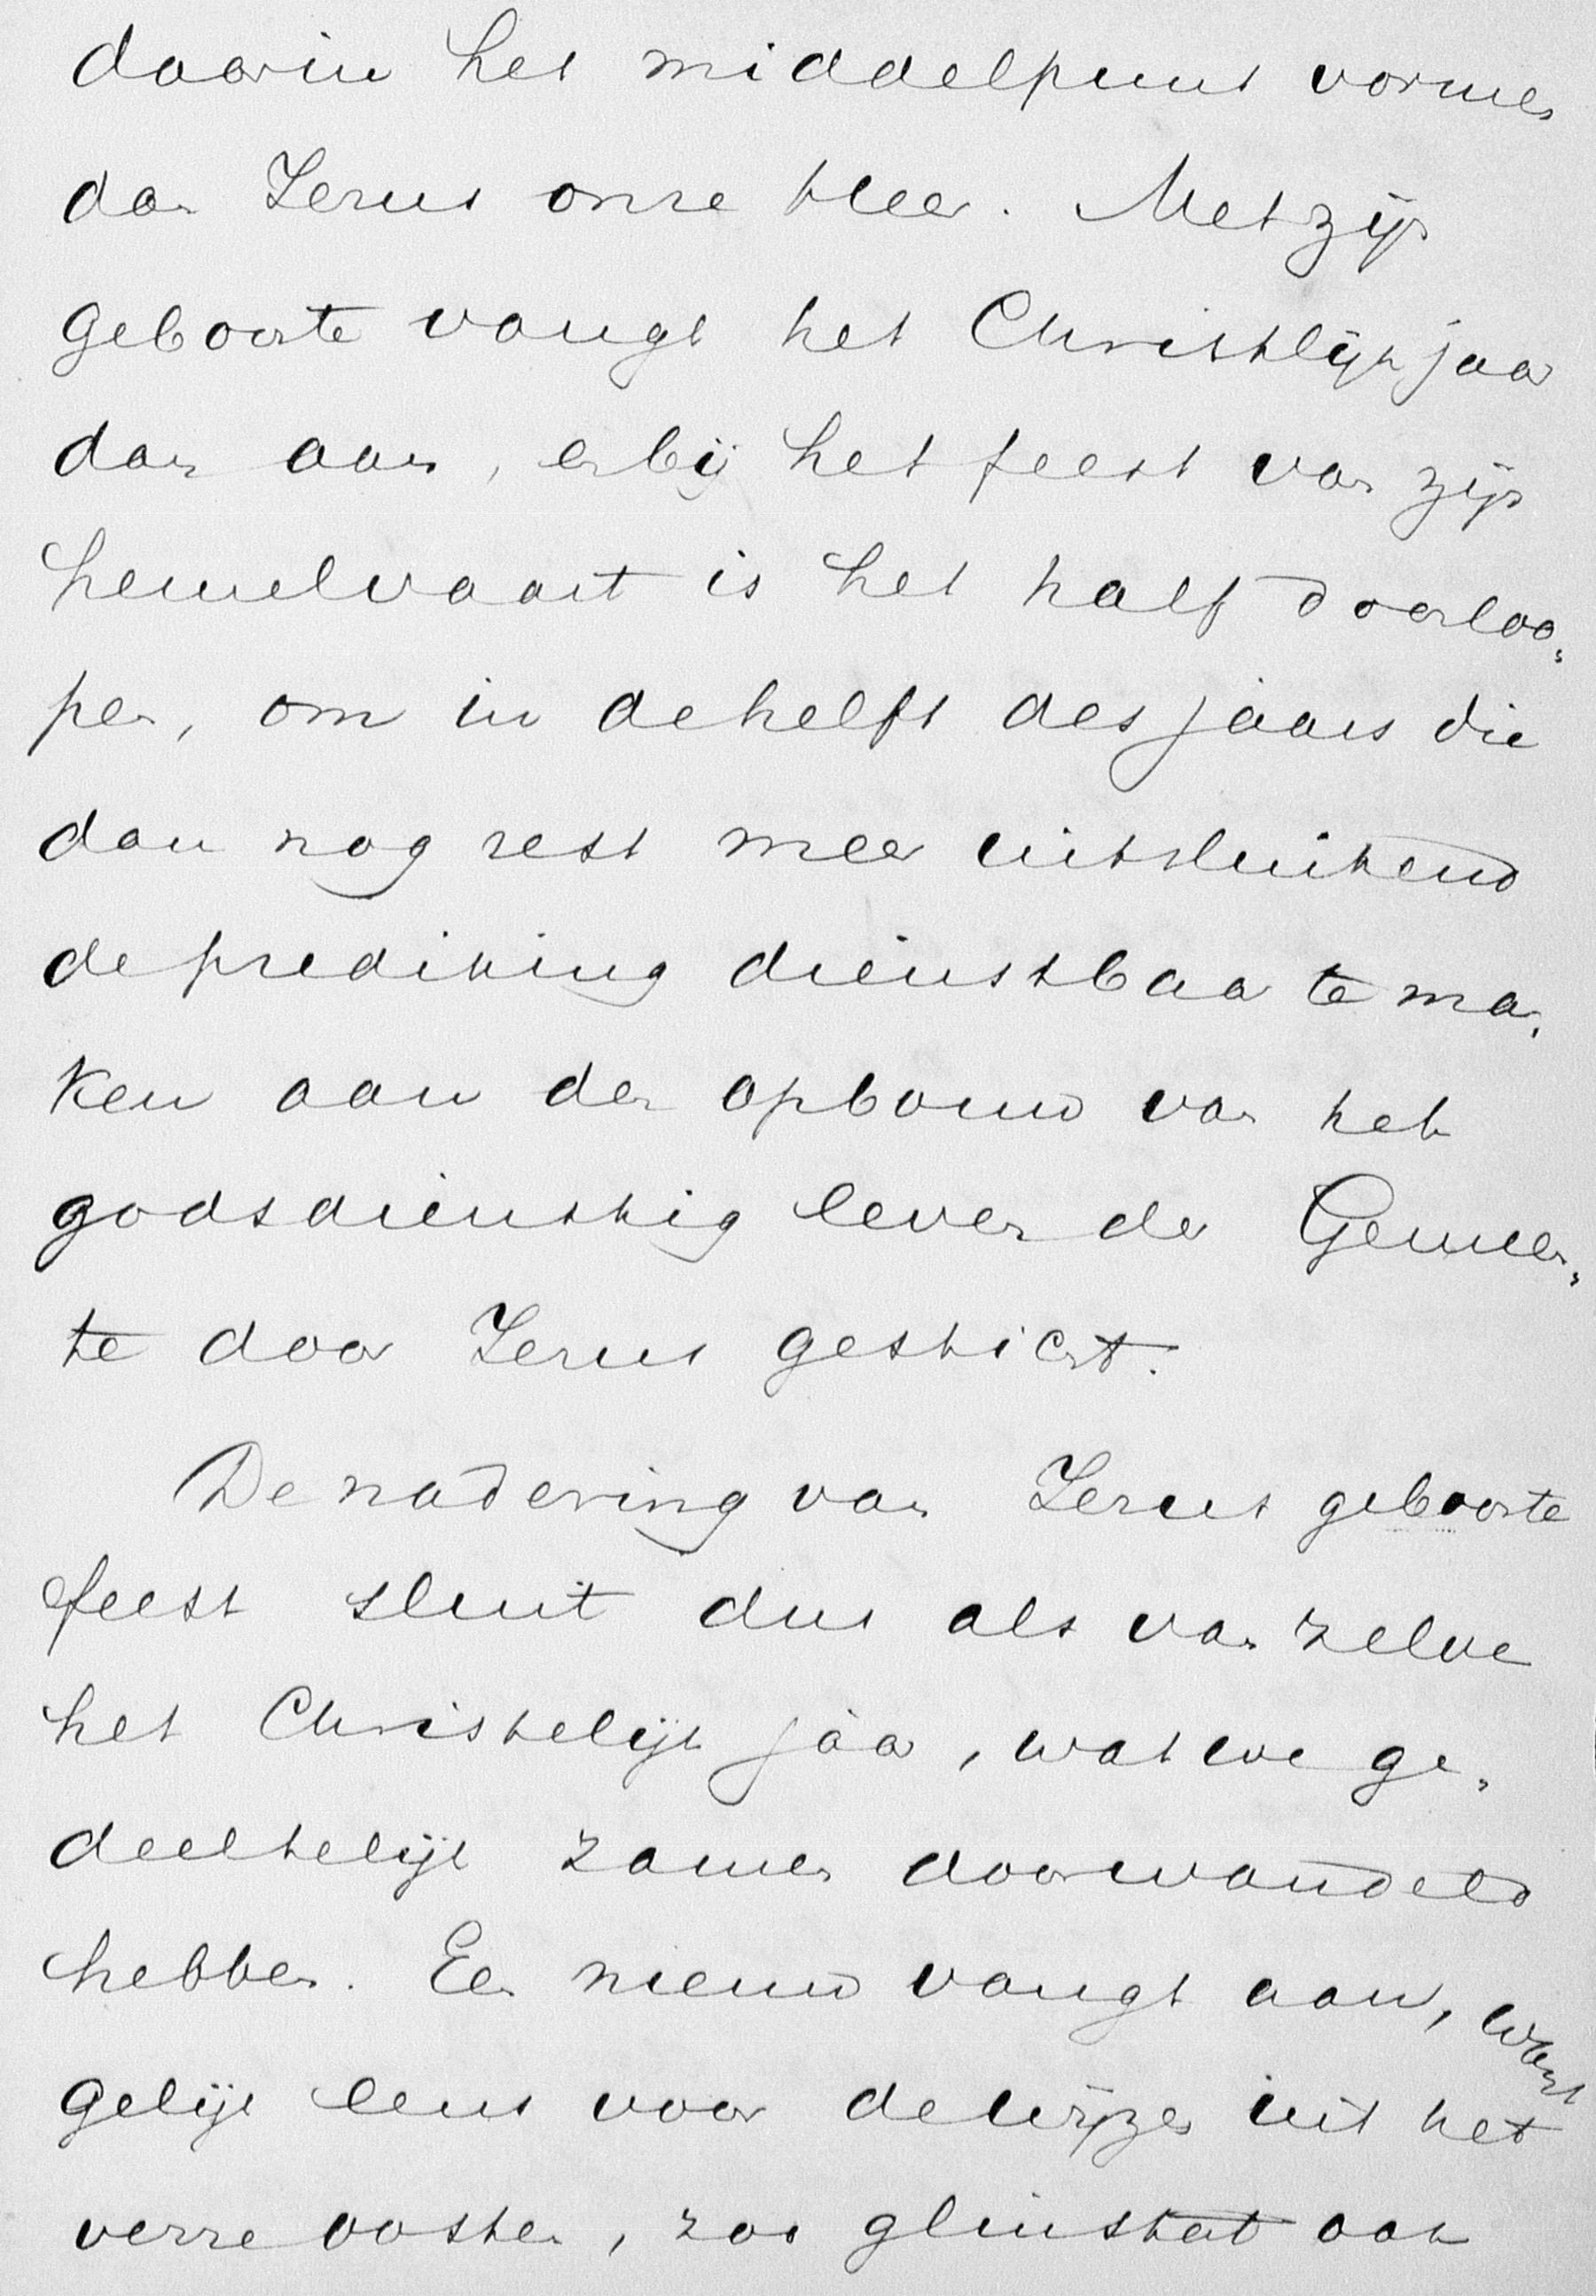 daarin het middelpunt vormen
dan Jezus onze Heer. Met zijn
geboorte vangt het Christlijk jaar
dan aan, en bij het feest van zijn
hemelvaart is het half doorloo„
pen, om in de helft des jaars die
dan nog rest meer uitsluitend
de prediking dienstbaar te ma„
ken aan den opbouw van het
godsdienstig leven der Gemeen„
te door Jezus gesticht.
De nadering van Jezus geboorte
feest sluit dus als van zelve
het Christelijk jaar, wat we ge„
deeltelijk zamen doorwandeld
hebben. Een nieuw vangt aan, want
gelijk eens voor de wijzen uit het
verre oosten, zoo glinstert ook